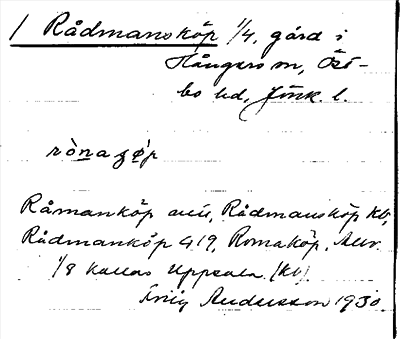 1 Rådmansköp 1/4, gård i
Hångers sn, Öst-
bo hd, Jönk. l.
rònaʒǿp
Råmanköp avs, Rådmansköp kb,
Rådmanköp G 19, Romaköp,
1/8 kallas Uppsala (kb)
Andersson 1930